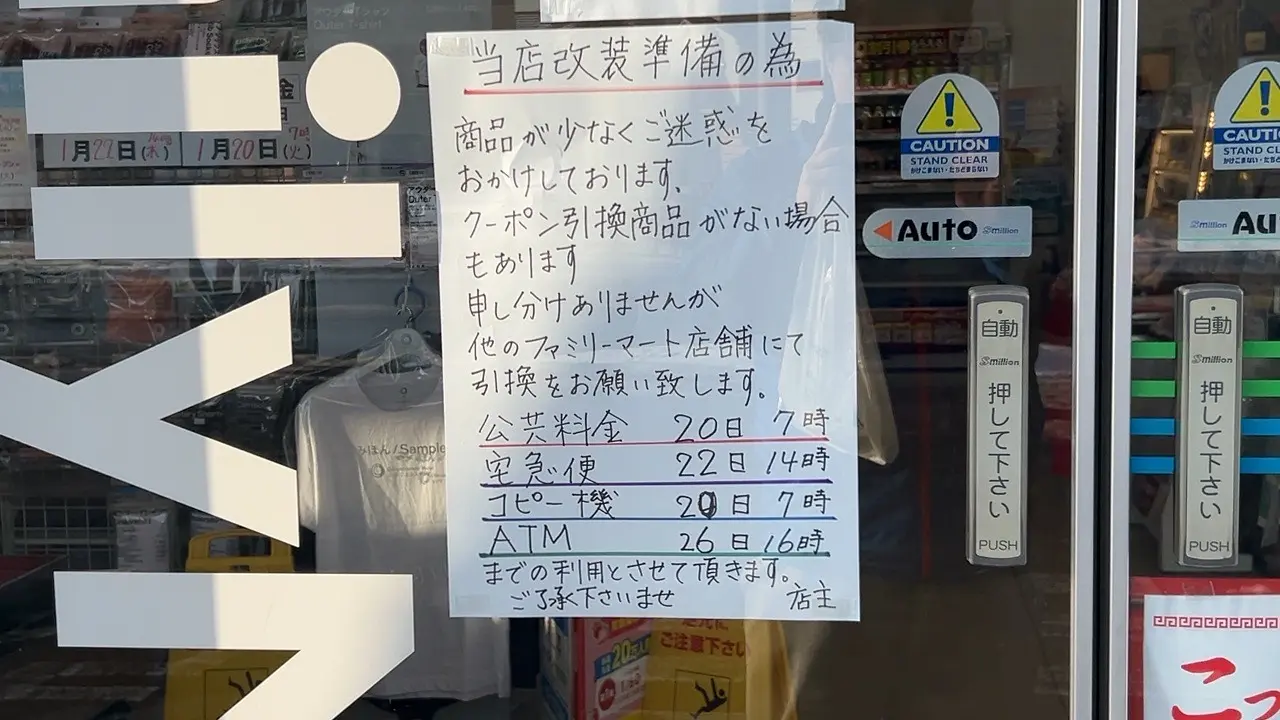 当店改装準備の為
商品が少なくご迷惑を
おかけしております。
クーポン引換商品がない場合
もあります
申し分けありませんが
他のファミリーマート店舗にて
引換をお願い致します。
公共料金 20日 7時
宅急便 22日 14時
コピー機 20日 7時
ATM 26日 16時
までの利用とさせて頂きます。
ご了承下さいませ 店主
1月22日(木) 1月20日(火) 7時
みほん/Sample
CAUTION
STAND CLEAR
かけこまない・たちどまらない
Auto Smillion
自動
Smillion
押して下さい
PUSH
CAUTI
STAND CL
Smillion Au
自動
Smillion
押して下さい
PUSH
ご注意下さい